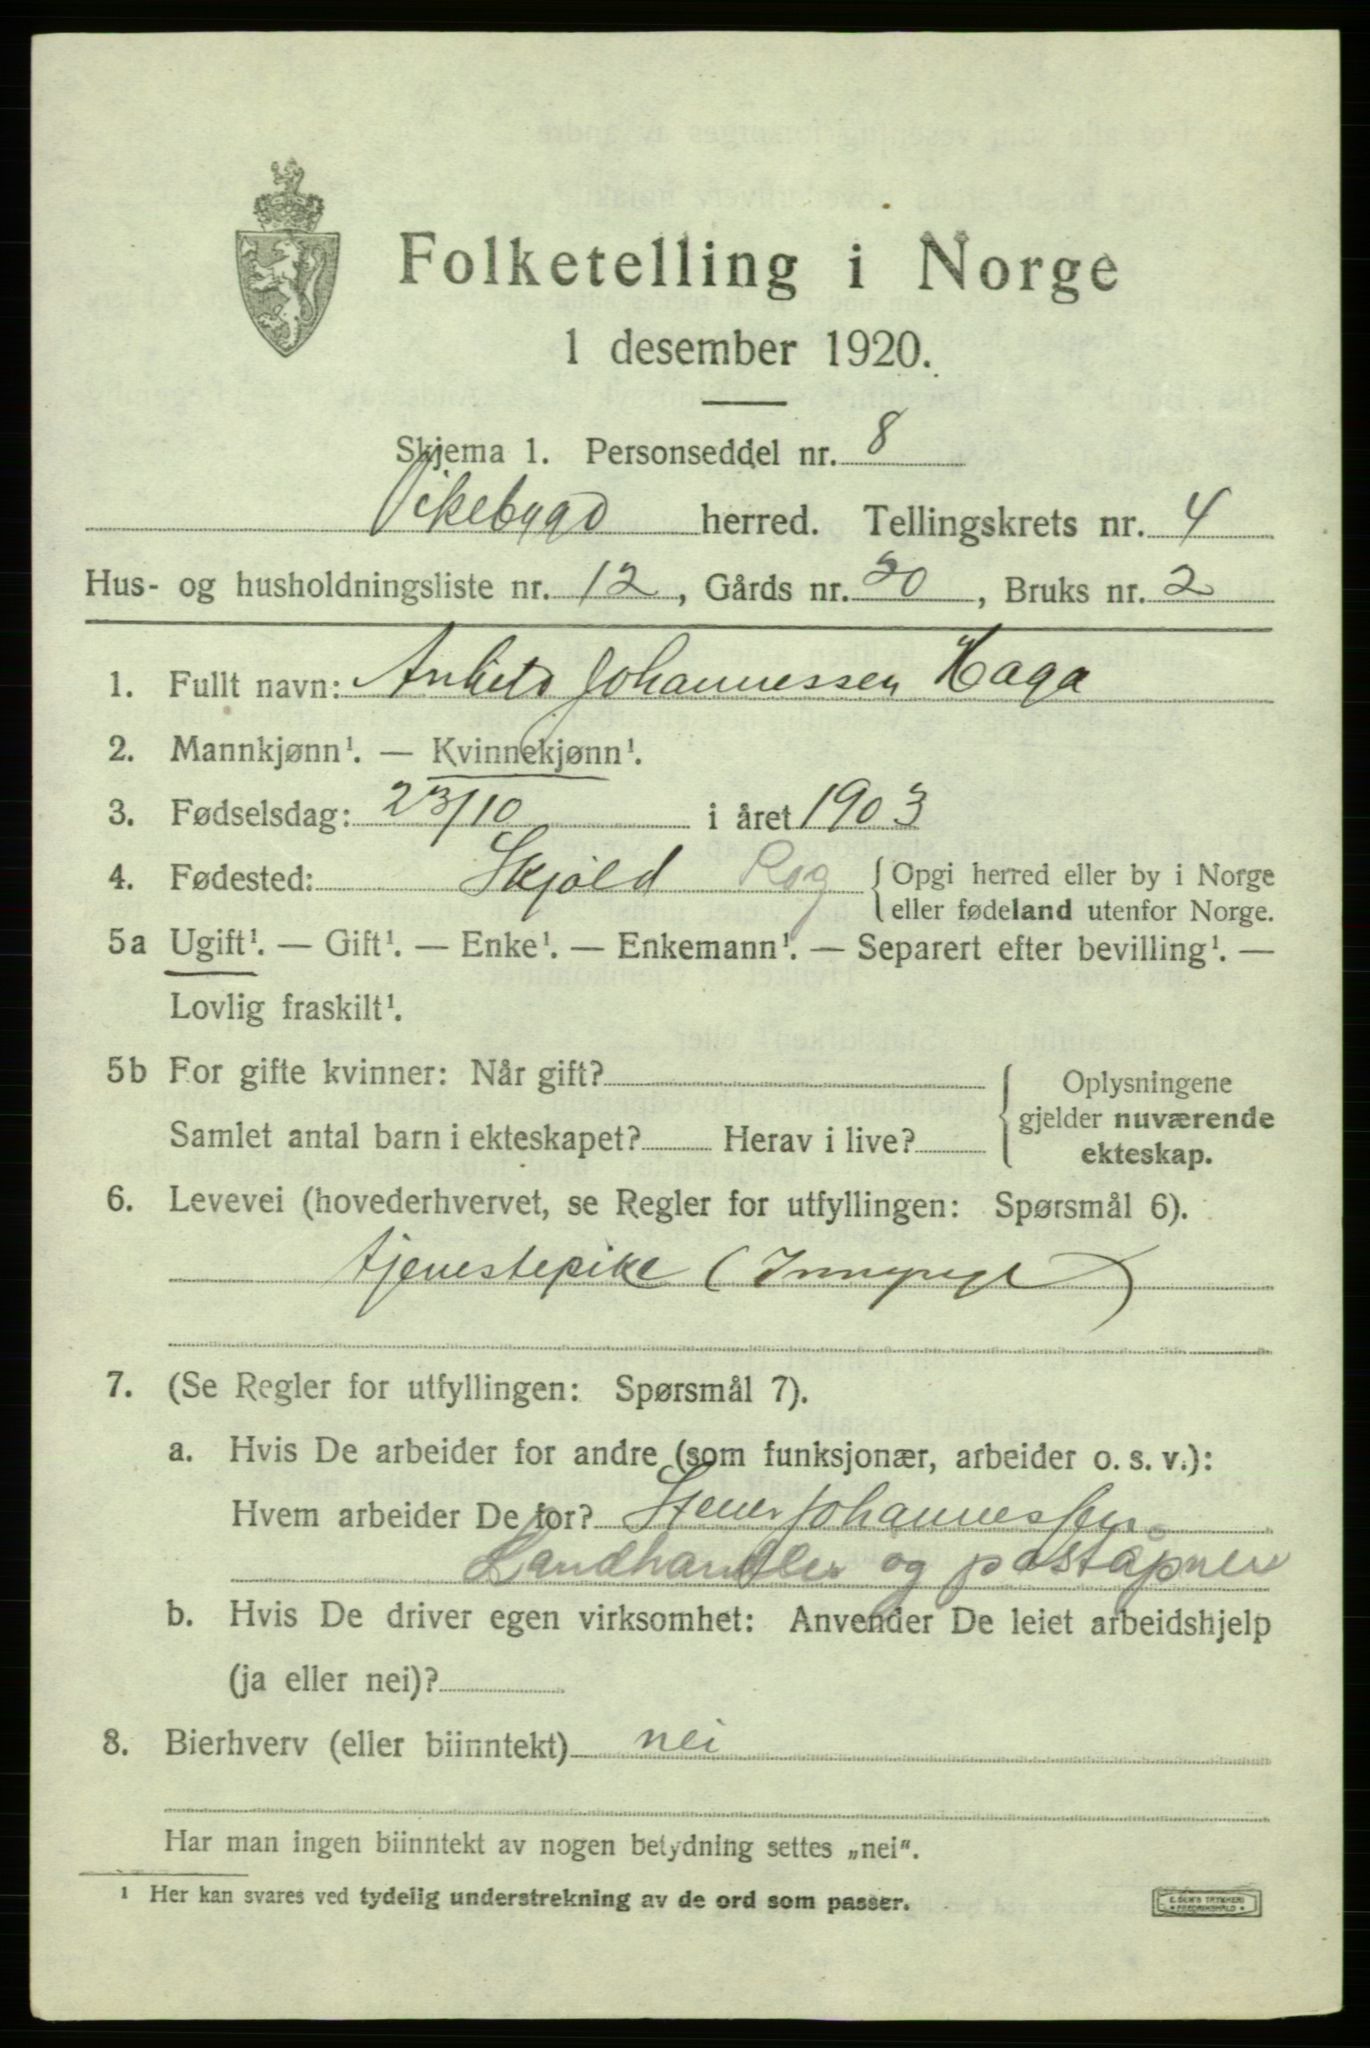 Folketelling i Norge
1 desember 1920.
Skjema 1. Personseddel nr. 8
Vikebygd herred. Tellingskrets nr. 4
Hus- og husholdningsliste nr. 12, Gårds nr. 20, Bruks nr. 2
1. Fullt navn: Johannessen Haga
2. Mannkjønn¹. — Kvinnekjønn¹.
3. Fødselsdag: 23/10 i året 1903
4. Fødested: Skjold Rog { Opgi herred eller by i Norge
eller fødeland utenfor Norge.
5a Ugift¹. — Gift¹. — Enke¹. — Enkemann¹. — Separert efter bevilling¹. —
Lovlig fraskilt¹.
5b For gifte kvinner: Når gift?
Samlet antal barn i ekteskapet? Herav i live?
{ Oplysningene
gjelder nuværende
ekteskap.
6. Levevei (hovederhvervet, se Regler for utfyllingen: Spørsmål 6).
tjenestepike (
7. (Se Regler for utfyllingen: Spørsmål 7).
a. Hvis De arbeider for andre (som funksjonær, arbeider o. s. v.):
Hvem arbeider De for? Johannessen
Landhandler og poståpner
b. Hvis De driver egen virksomhet: Anvender De leiet arbeidshjelp
(ja eller nei)?
8. Bierhverv (eller biinntekt) nei
Har man ingen biinntekt av nogen betydning settes „nei“.
¹ Her kan svares ved tydelig understrekning av de ord som passer.